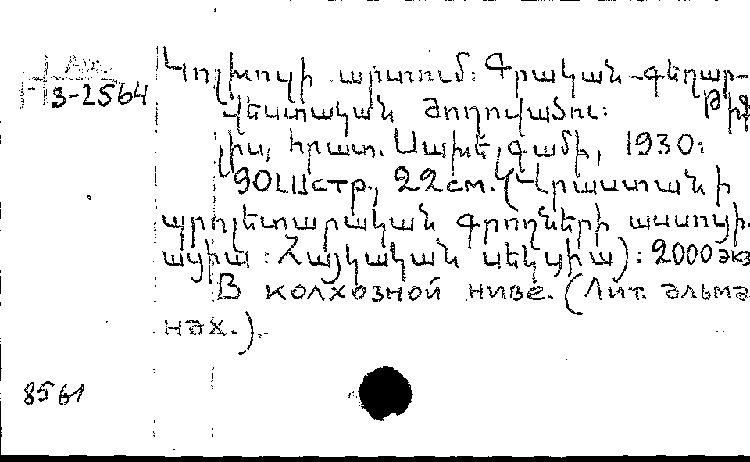 Арм.
3-2564
Կոլխոզի արտում: Գրական-գեղար-
վեստական ժողովածու: Թիֆ
լիս, հրատ. Սախելգամի, 1930:
90 стр., 22 см. (Վրաստանի
պրոլետարական գրողների ասոցի-
ացիա: Հայկական սեկցիա): 2000 экз
В колхозной ниве. (Лит. альма
нах.).
8561